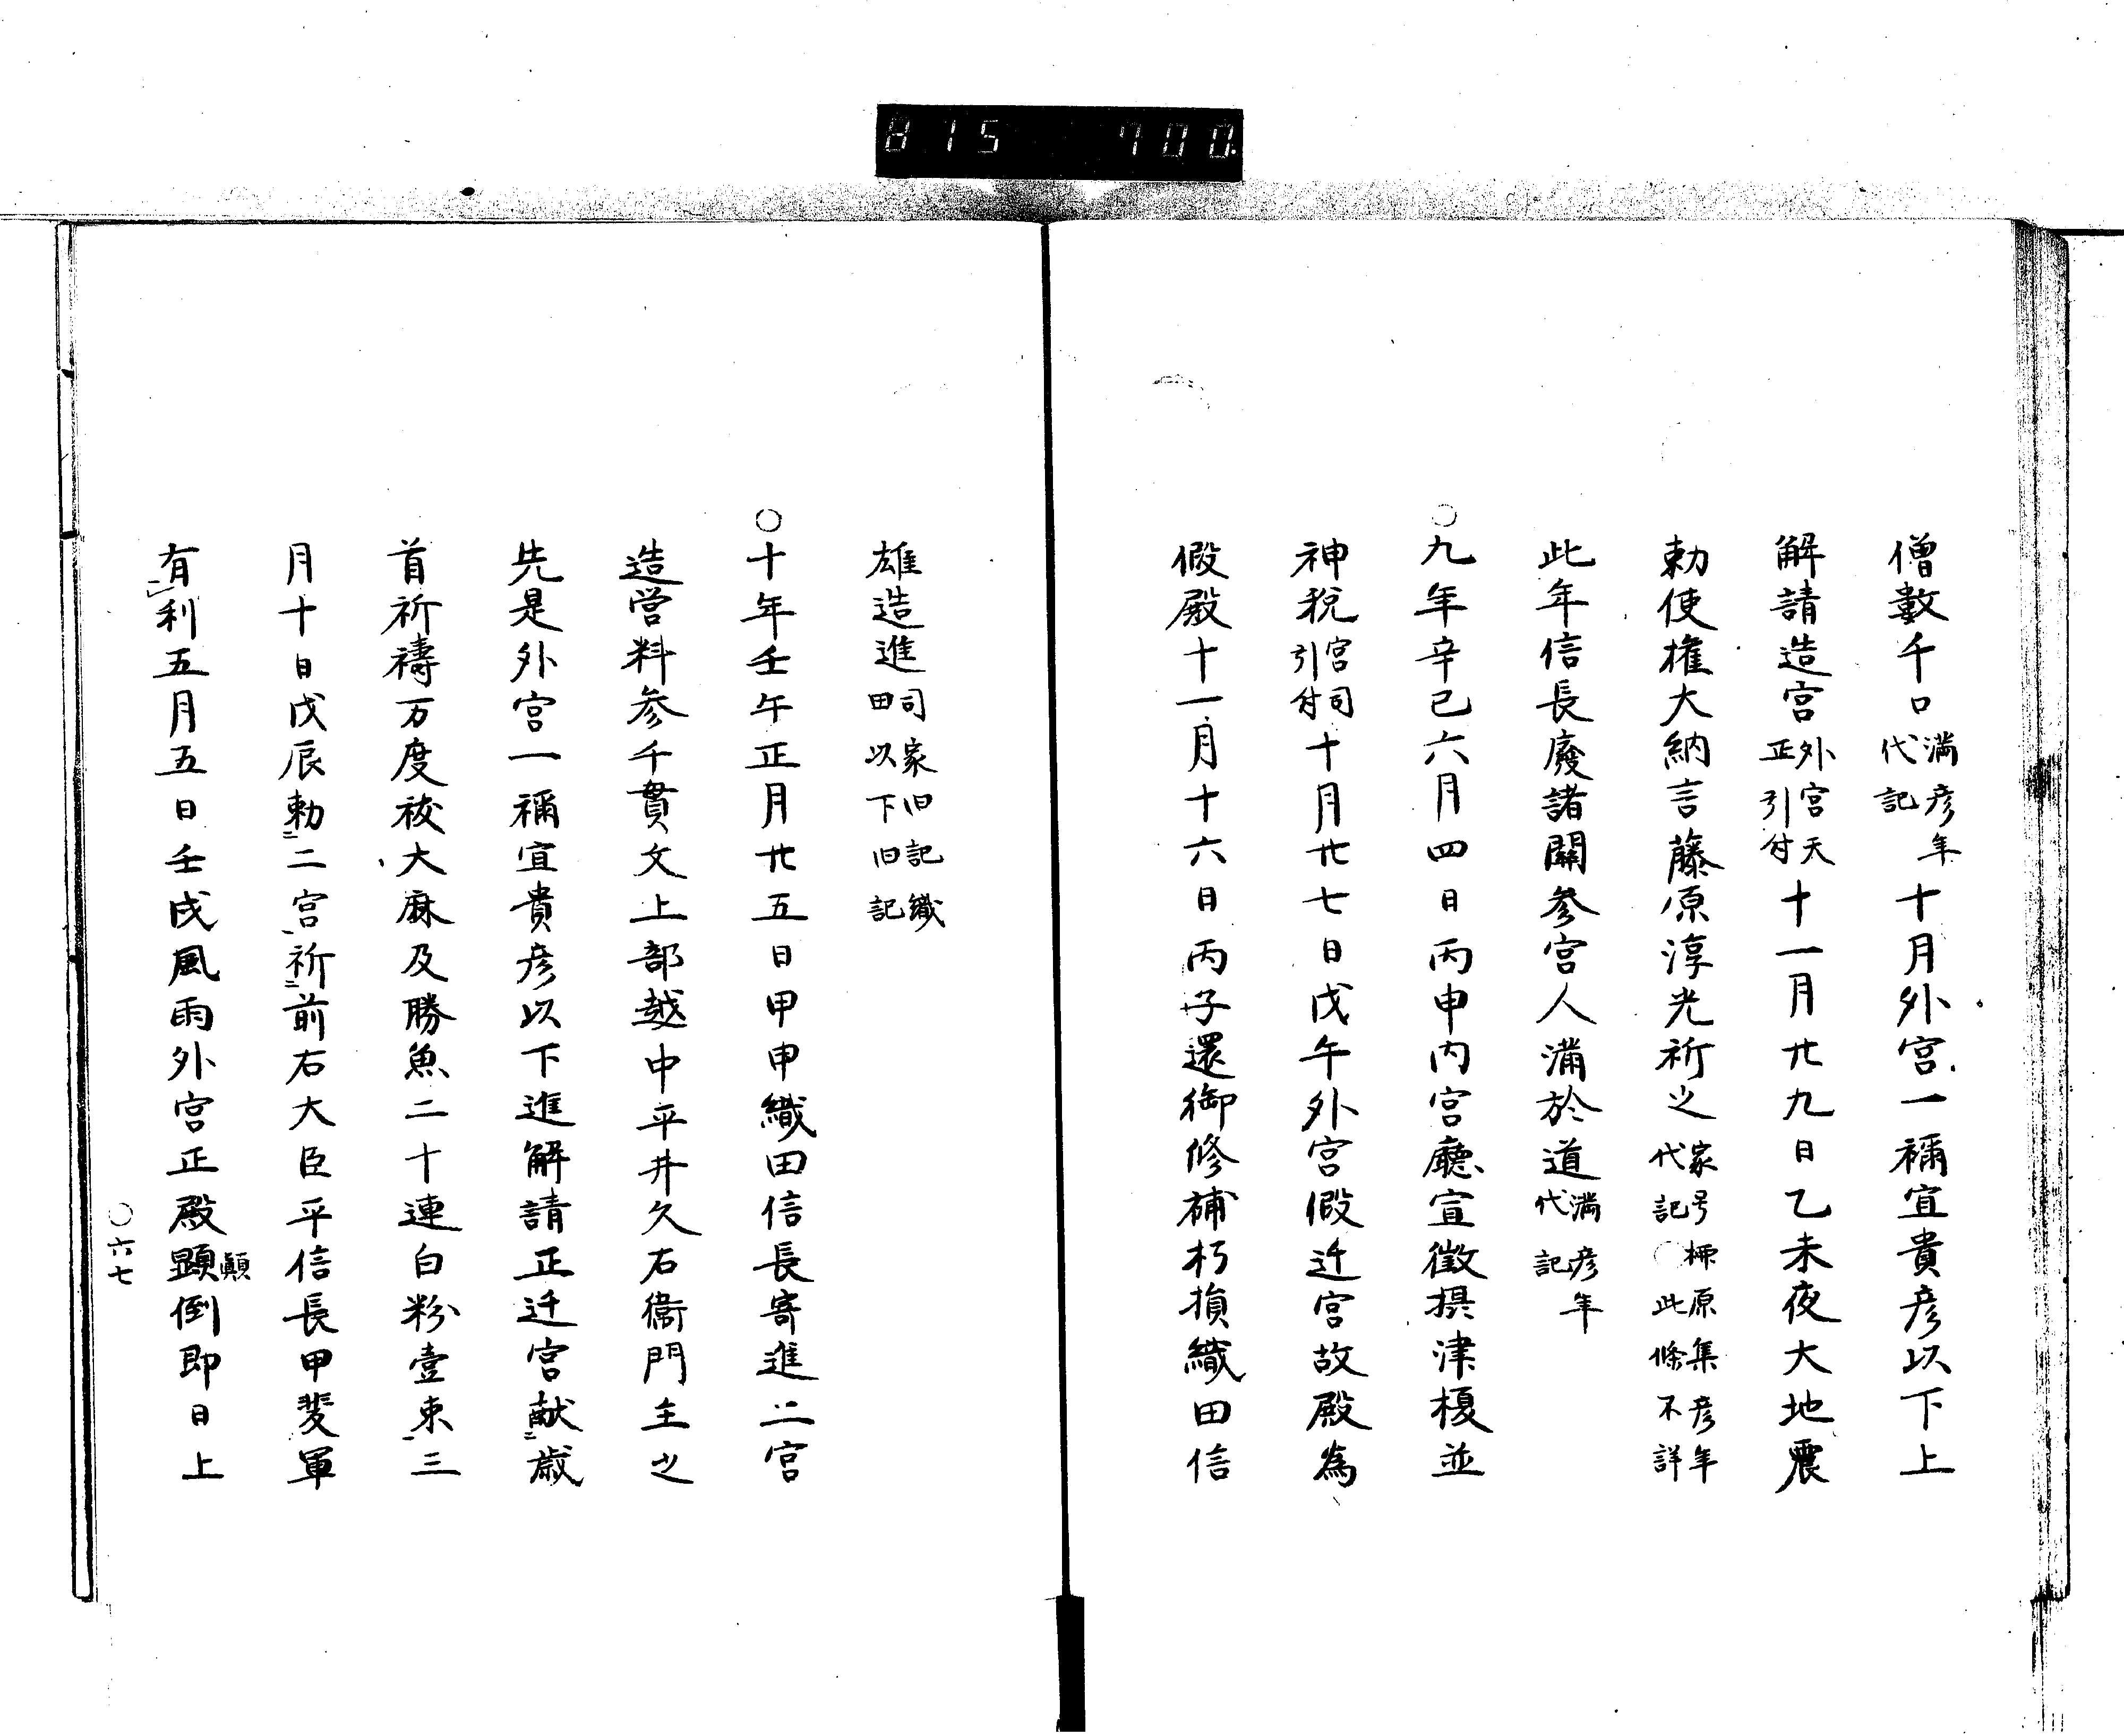 815 700
僧數千口満彦年代記十月外宮一禰宜貴彦以下上
解請造宮外宮天正引付十一月廿九日乙未夜大地震
勅使権大納言藤原淳光祈之家号柳原集彦年代記〇此條不詳
此年信長廢諸關参宮人満於道満彦年代記
〇九年辛已六月四日丙申内宮廳宣徴摂津榎並
神税宮司引付十月廿七日戊午外宮假迁宮故殿為
假殿十一月十六日丙子還御修補朽損織田信
雄造進司家旧記織田以下旧記
〇十年壬午正月廿五日甲申織田信長寄進二宮
造営料参千貫文上部越中平井久右衞門主之
先是外宮一禰宜貴彦以下進解請正迁宮献二歳
首祈禱万度祓大麻及勝魚二十連白粉壹束一三
月十日戊辰勅二二宮一祈二前右大臣平信長甲斐軍
有レ利五月五日壬戌風雨外宮正殿顕顛倒即日上
〇六七